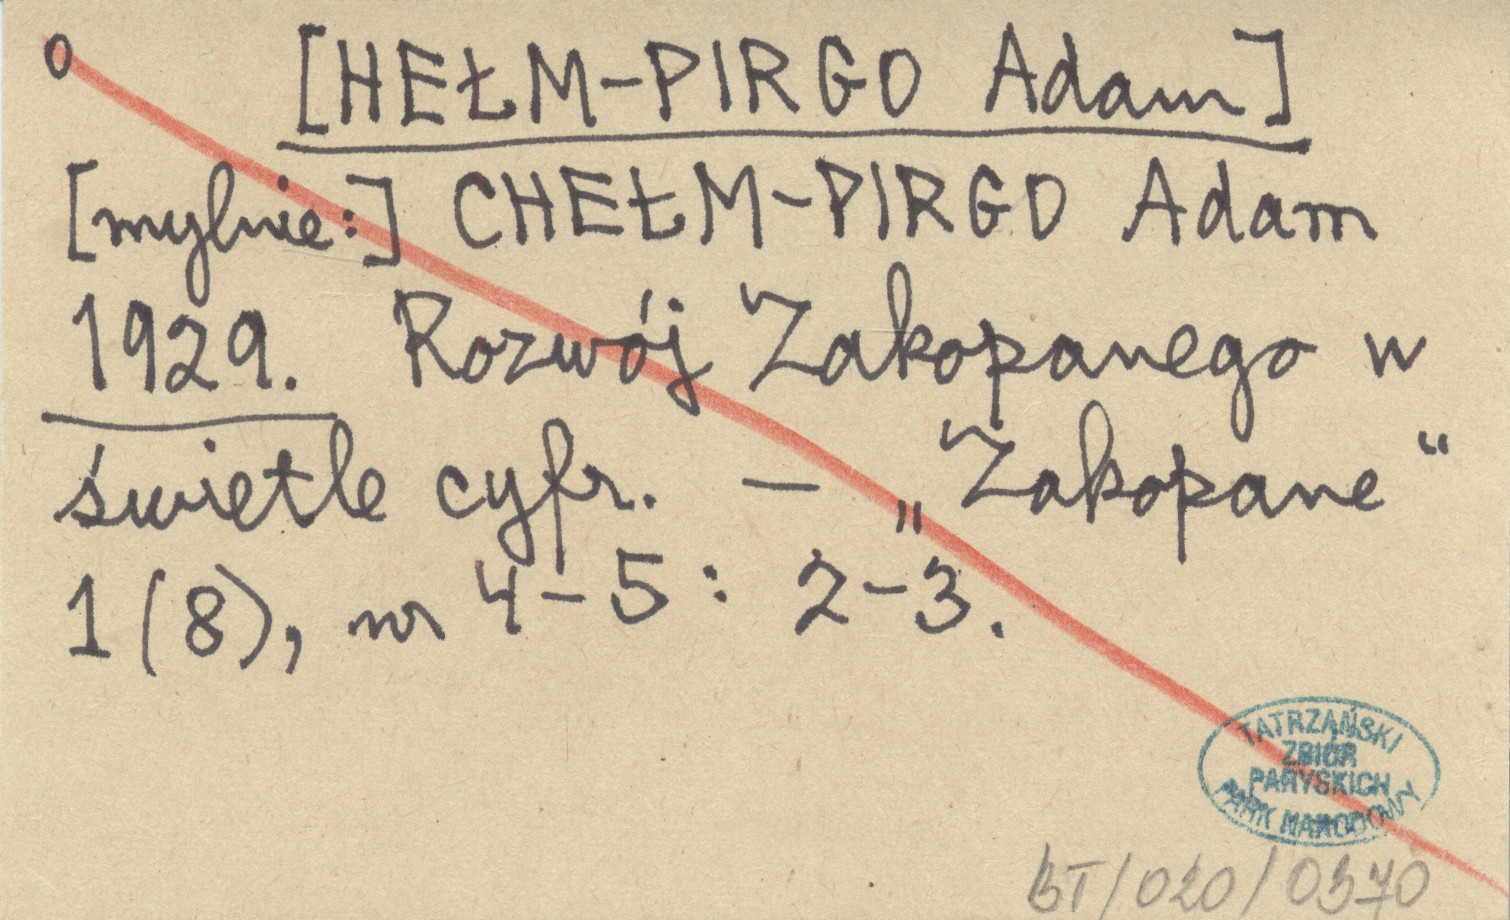 o [HEŁM-PIRGO Adam]
[mylnie:] CHEŁM-PIRGO Adam
1929. Rozwój Zakopanego w
świetle cyfr. – „Zakopane“
1(8), nr 4-5: 2-3.
TATRZAŃSKI
ZBIÓR
PARYSKICH
PARK NARODOWY
BT/020/0370